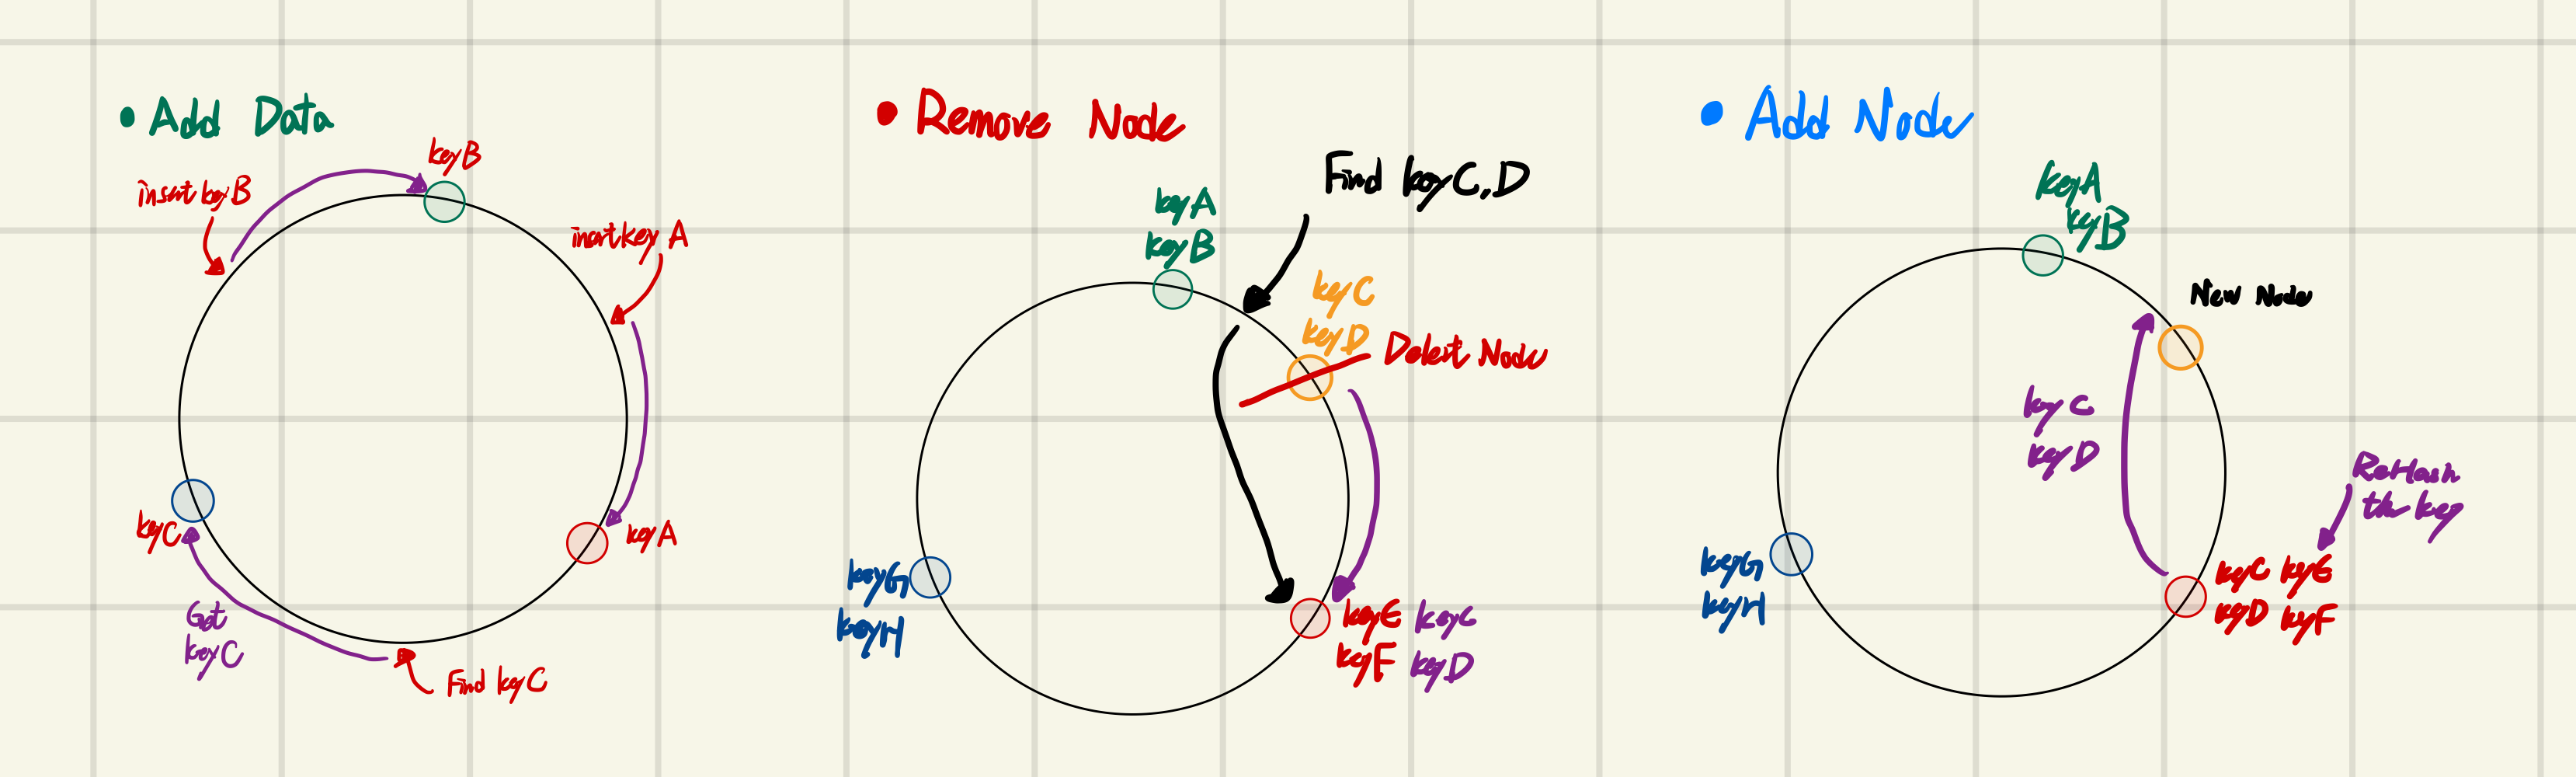 • Add Data
keyB
insert keyB
insrt key A
keyC
keyA
Get
keyC
Find keyC
• Remove Node
Find keyC,D
keyA
keyB
keyC
keyD
Delect Node
keyG
keyH
keyE keyC
keyF keyD
• Add Node
keyA
keyB
New Node
key C
keyD
ReHash
the key
keyG
keyH
keyC keyE
keyD keyF